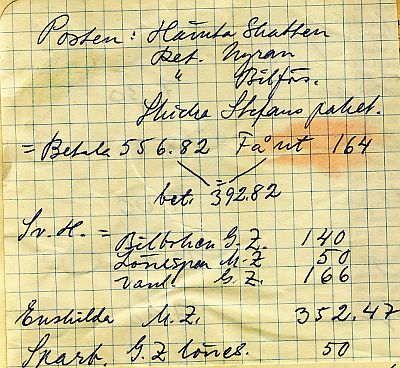 Posten: Hämta Skatten
Bet. Hyran
" Bilförs.
Skicka Stefans paket.
= Betala 556.82 Få ut 164
=
bet. 392.82
Sv. H. = Bilboken G.Z. 140
Lönespar M-Z 50
vanl. G.Z. 166
Enskilda M.Z. 352.47
Sparb. G.Z lönes. 50